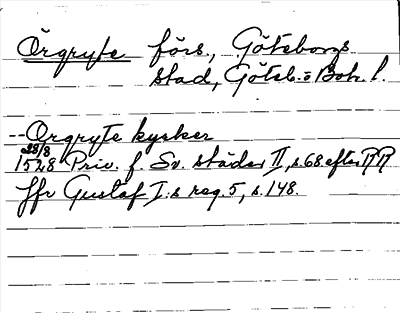 Örgryte förs., Göteborgs
stad, Göteb. o Boh. l.
-- Örgryte kyrker
28/8
1528 Priv. f. Sv. städer II, s. 68 efter RR
Jfr Gustaf I:s reg. 5, s. 148.